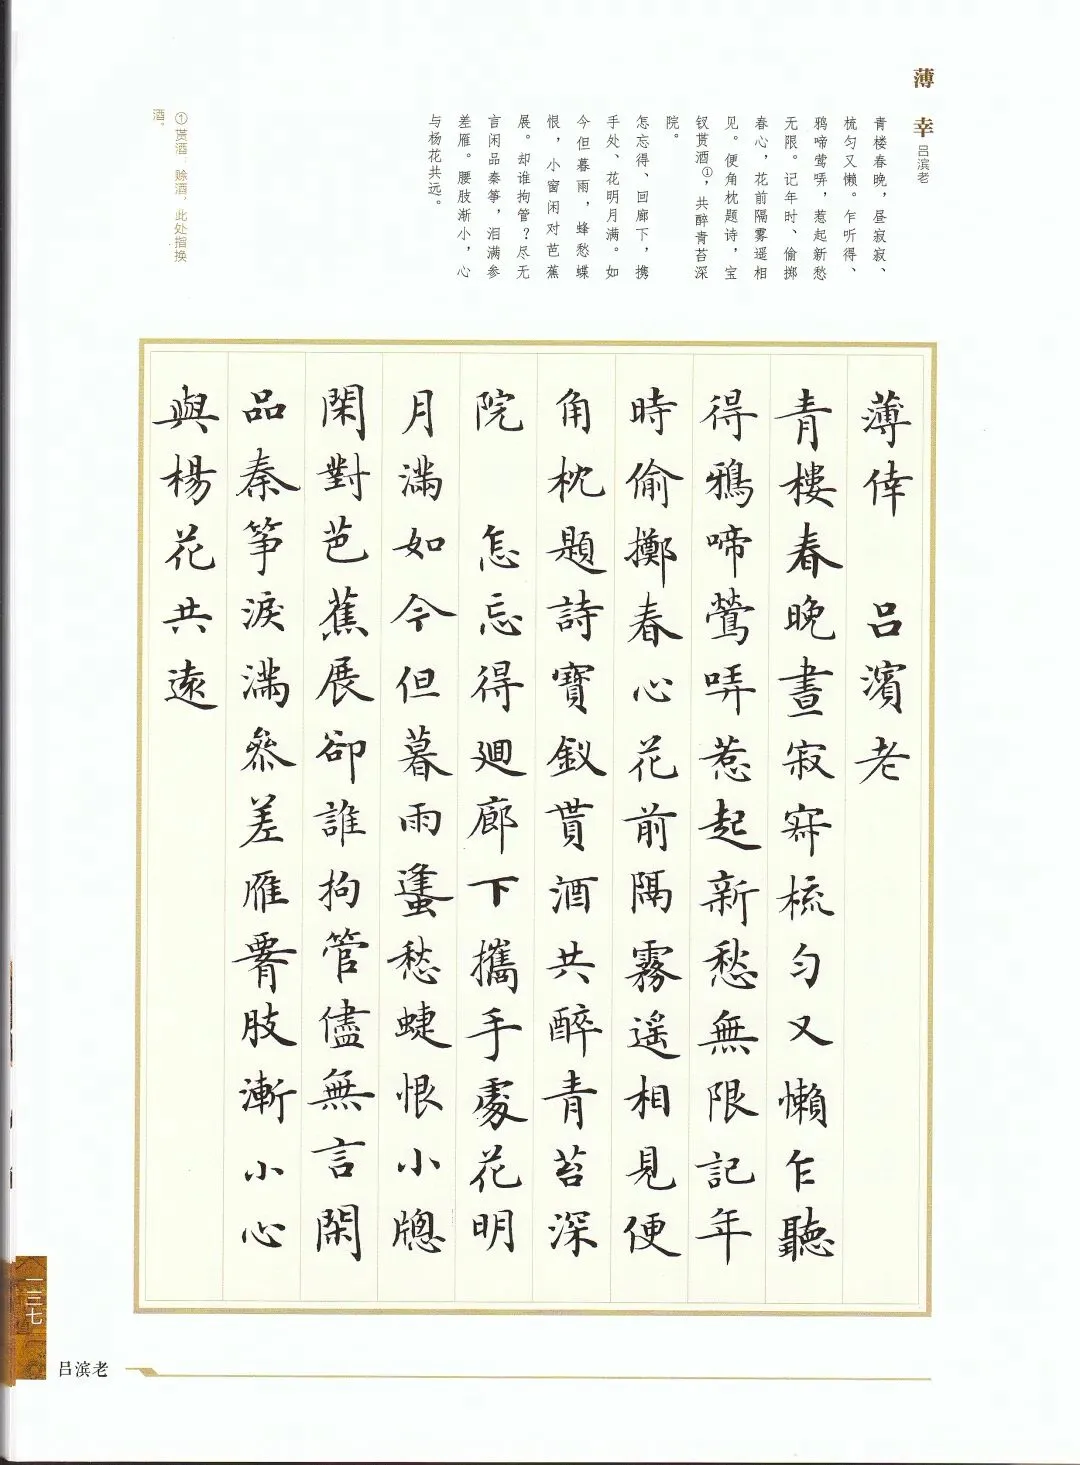 薄幸
吕滨老
青楼春晚，昼寂寂、
梳匀又懒。乍听得、
鸦啼莺哢，惹起新愁
无限。记年时、偷掷
春心，花前隔雾遥相
见。便角枕题诗，宝
钗贳酒①，共醉青苔深
院。
怎忘得、回廊下，携
手处、花明月满。如
今但暮雨，蜂愁蝶
恨，小窗闲对芭蕉
展。却谁拘管？尽无
言闲品秦筝，泪满参
差雁。腰肢渐小，心
与杨花共远。
①贳酒：赊酒，此处指换
酒。
薄倖 吕濱老
青樓春晚晝寂寂梳匀又懶乍聽
得鴉啼鶯哢惹起新愁無限記年
時偷擲春心花前隔霧遥相見便
角枕題詩寶釵貰酒共醉青苔深
院 怎忘得廻廊下攜手處花明
月滿如今但暮雨蠭愁蜨恨小牕
閑對芭蕉展卻誰拘管儘無言閑
品秦筝淚滿參差雁腰肢漸小心
與楊花共遠
一三七
吕滨老